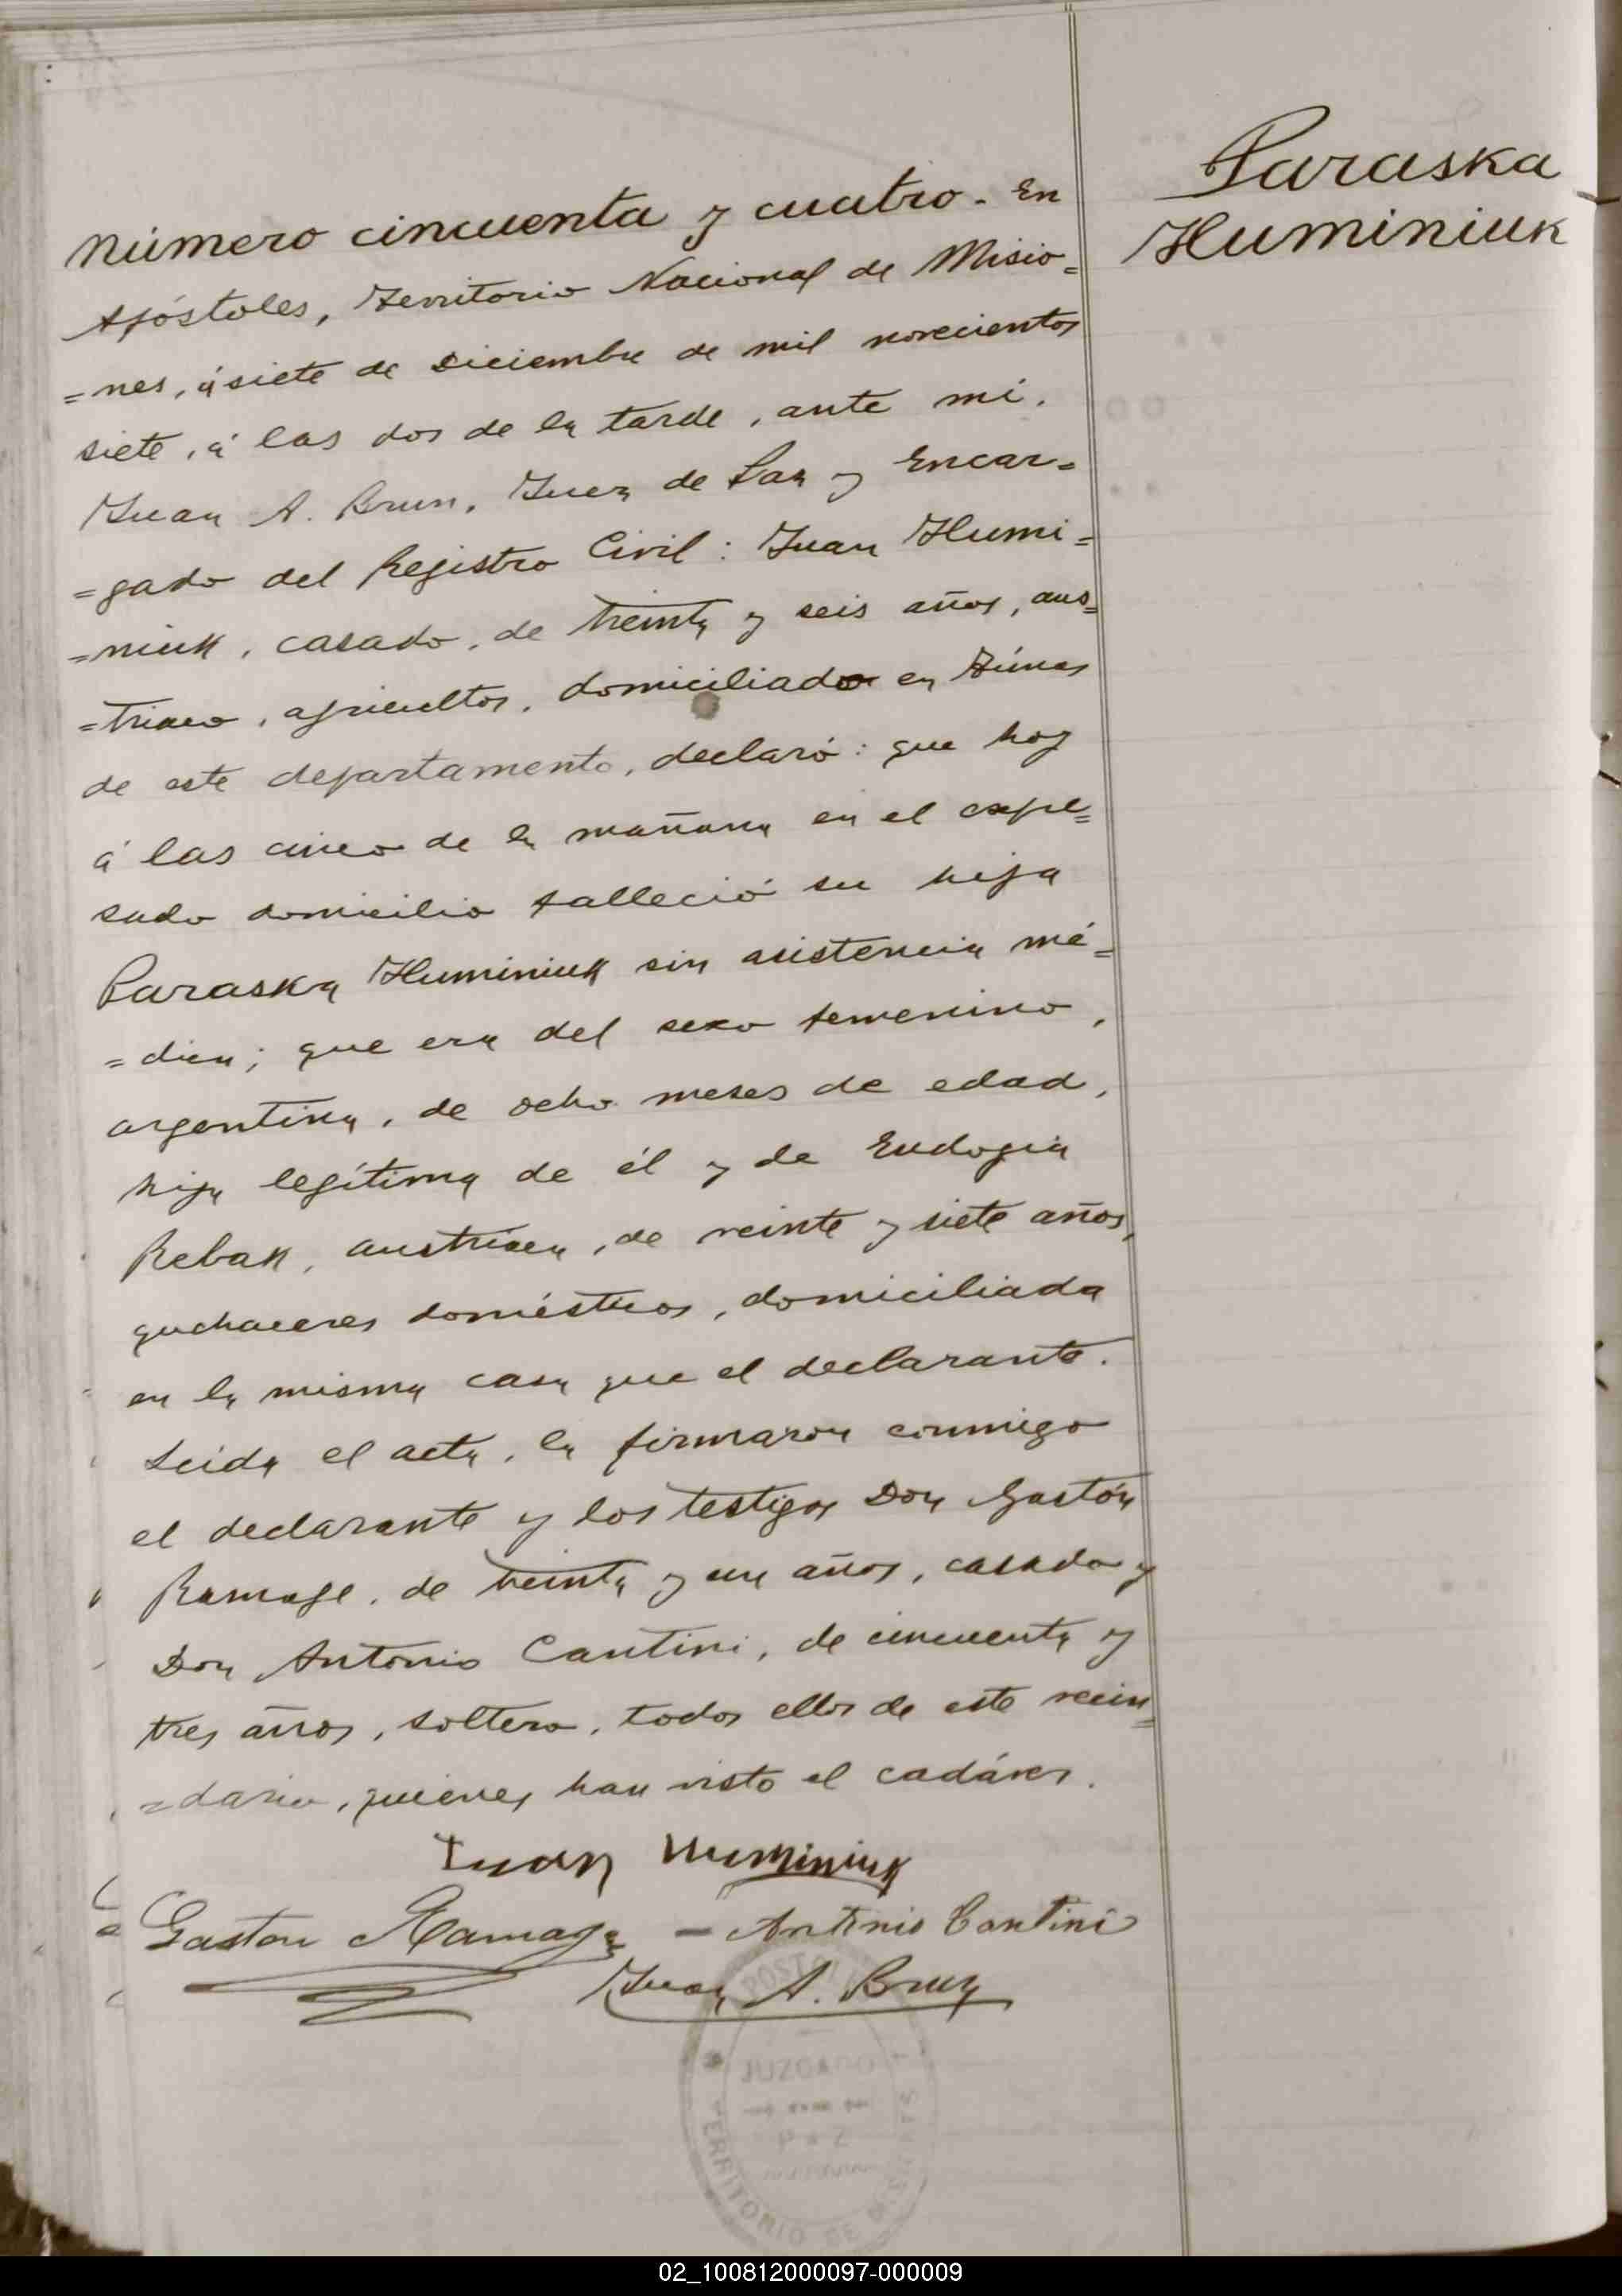 Paraska
Huminiuk
Número cincuenta y cuatro. En
Apóstoles, Territorio Nacional de Misio=
=nes, á siete de Diciembre de mil novecientos
siete, á las dos de la tarde, ante mí,
Juan A. Brun, Juez de Paz y Encar=
=gado del Registro Civil: Juan Humi=
=niuk, casado, de treinta y seis años, aus=
=triaco, agricultor, domiciliado en Túnas
de este departamento, declaró: que hoy
á las cinco de la mañana en el expre=
sado domicilio falleció su hija
Paraska Huminiuk sin asistencia mé=
=dica; que era del sexo femenino,
argentina, de ocho meses de edad,
hija legítima de él y de Eudogia
Rebak, austríaca, de veinte y siete años,
quehaceres domésticos, domiciliada
en la misma casa que el declarante.
Leida el acta, la firmaron conmigo
el declarante y los testigos Don Gastón
Ramage, de treinta y un años, casado y
Don Antonio Cantini, de cincuenta y
tres años, soltero, todos ellos de este vecin=
=dario, quienes han visto el cadáver.
Juan Huminiuk
Gaston Ramage - Antonio Cantini
Juan A. Brun
JUZGADO
PAZ
TERRITORIO DE MISIONES
02_100812000097-000009